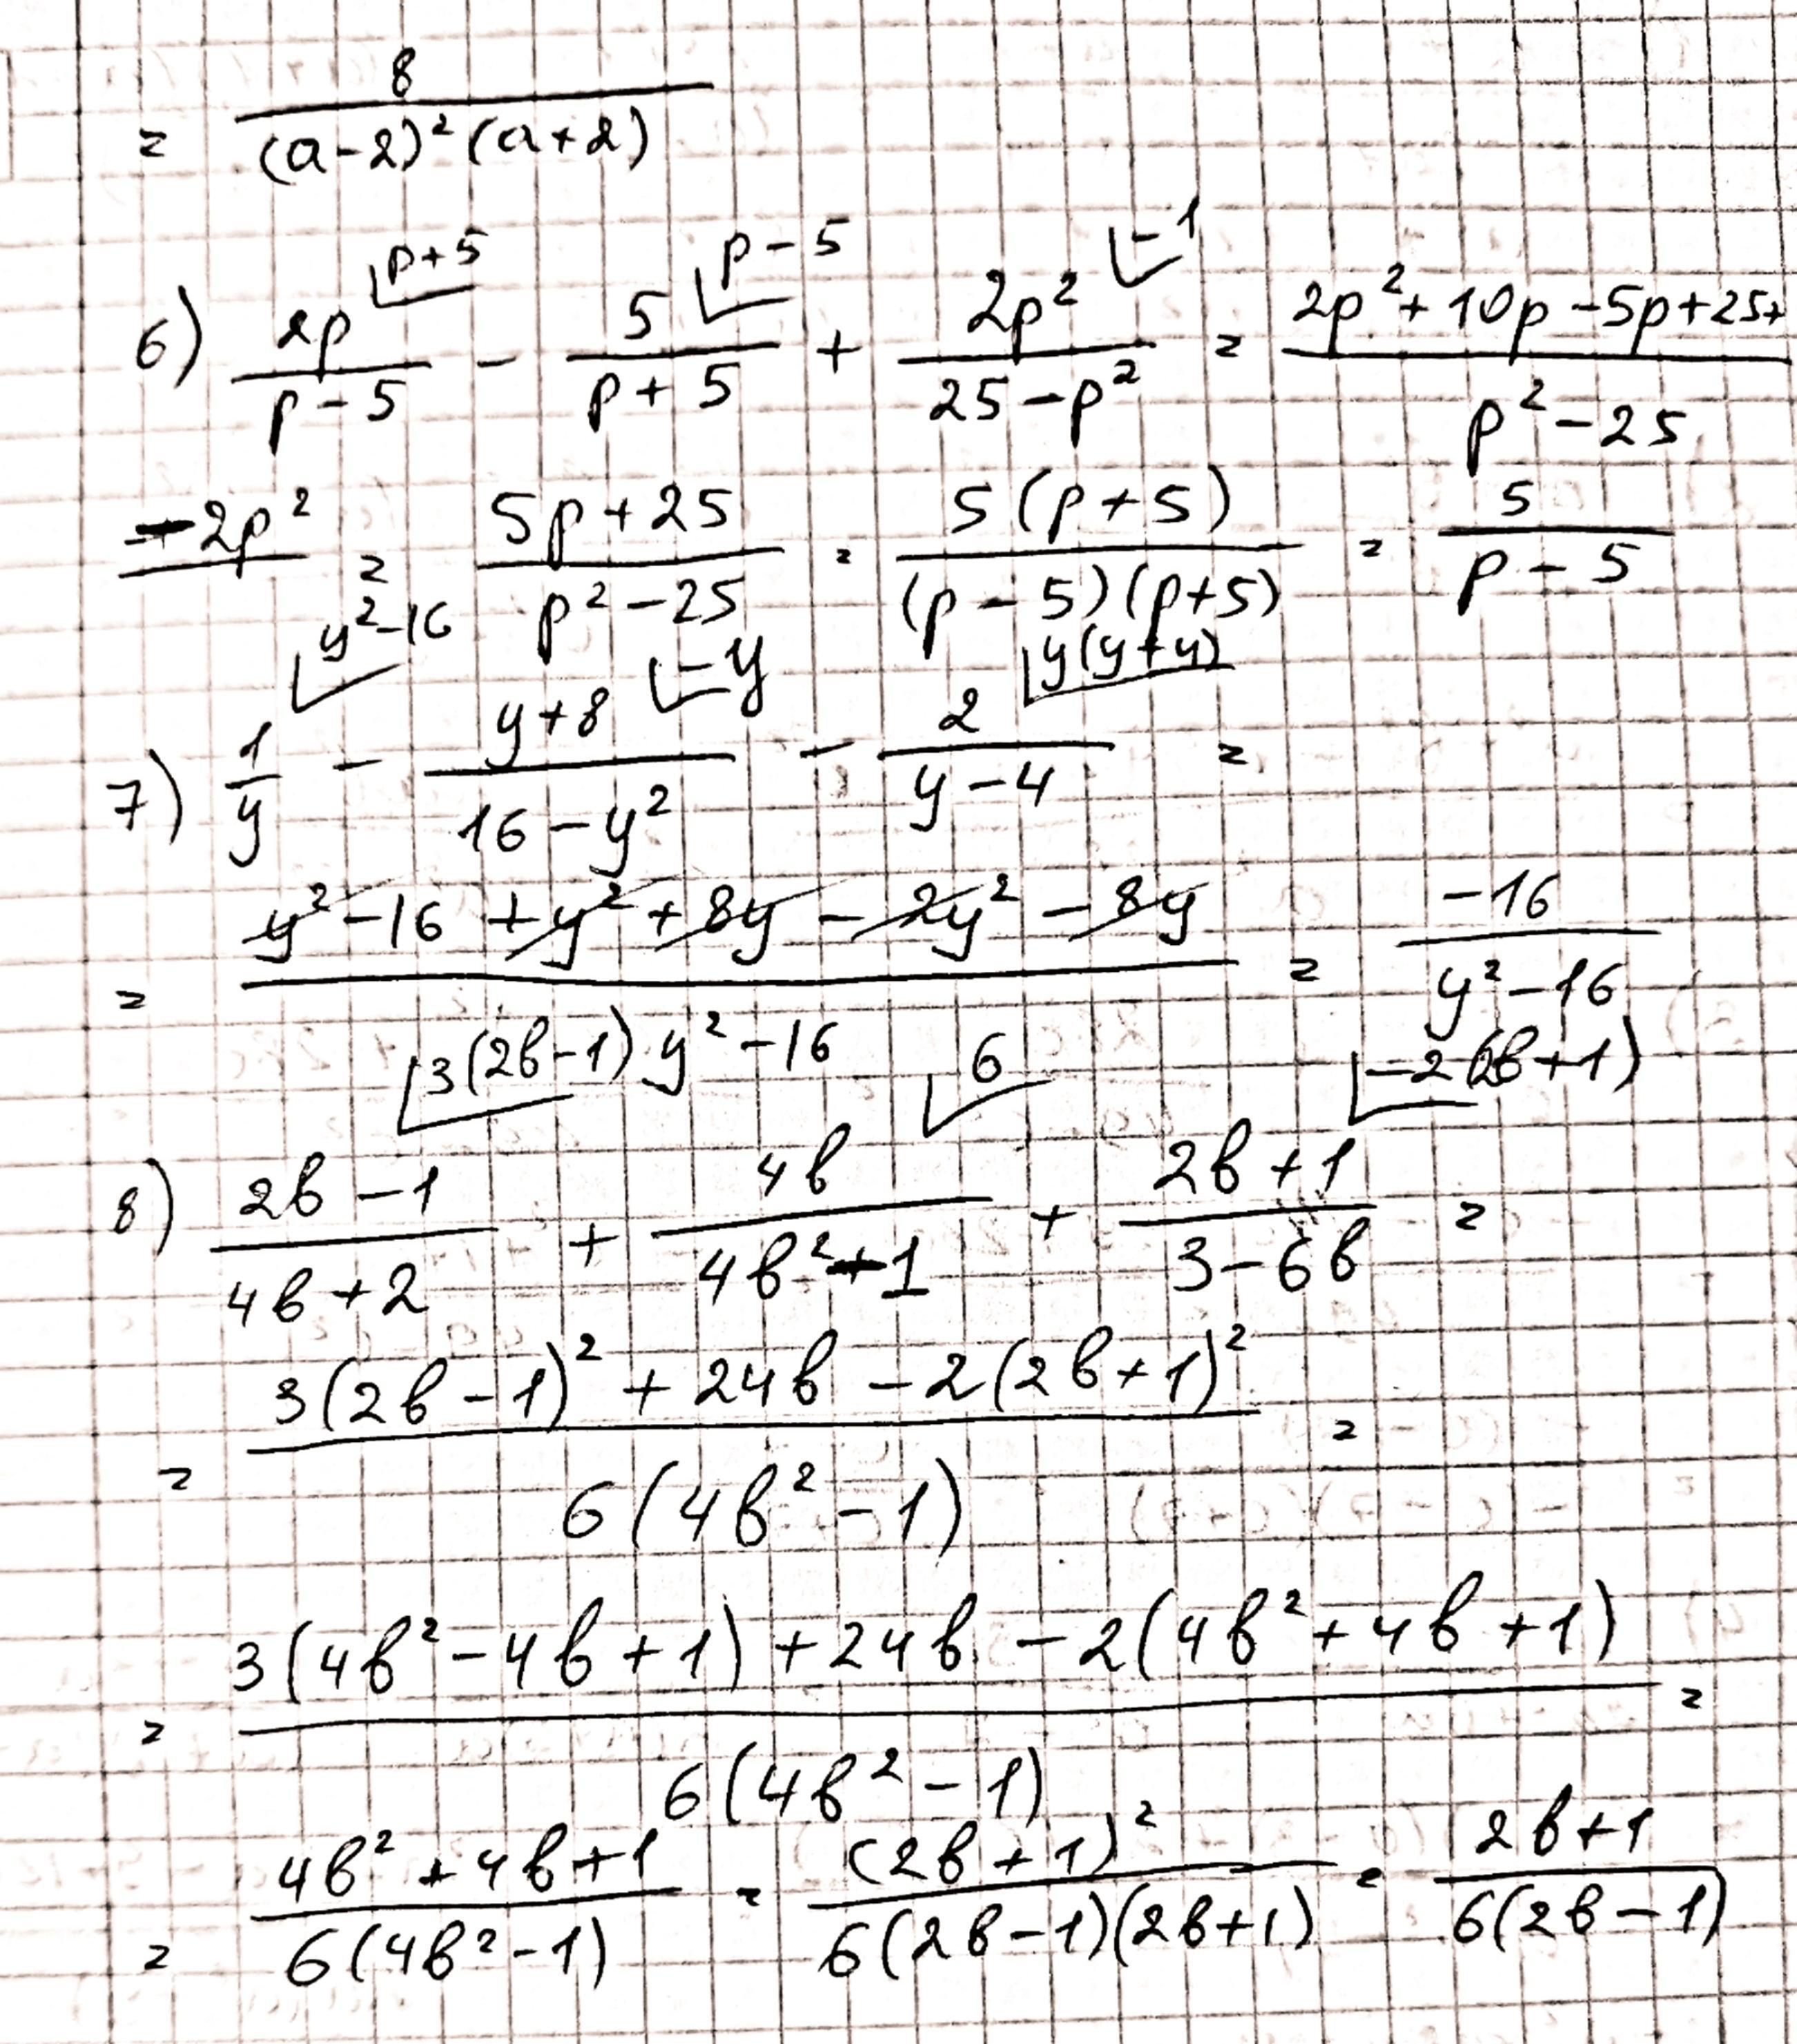 = 8/((a-2)²(a+2))
6) 2p/(p-5) ⌊p+5 - 5/(p+5) ⌊p-5 + 2p²/(25-p²) ⌊-1 = (2p²+10p-5p+25+)/(p²-25)
-2p² = (5p+25)/(p²-25) = 5(p+5)/((p-5)(p+5)) = 5/(p-5)
7) 1/y ⌊y²-16 - (y+8)/(16-y²) ⌊-y - 2/(y-4) ⌊y(y+4) =
= (y²-16+y²+8y-2y²-8y)/(y²-16) = -16/(y²-16)
8) (2b-1)/(4b+2) ⌊3(2b-1) + 4b/(4b²-1) ⌊6 + (2b+1)/(3-6b) ⌊-2(2b+1) =
= (3(2b-1)²+24b-2(2b+1)²)/(6(4b²-1)) =
= (3(4b²-4b+1)+24b-2(4b²+4b+1))/(6(4b²-1)) =
= (4b²+4b+1)/(6(4b²-1)) = (2b+1)²/(6(2b-1)(2b+1)) = (2b+1)/(6(2b-1))